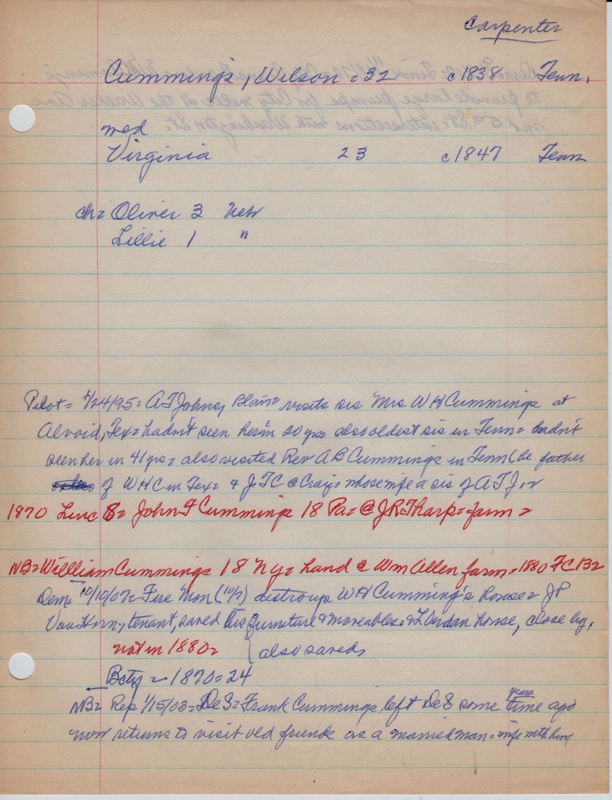 Carpenter
Cummings, Wilson = 32 c1838 Tenn.
med
Virginia 23 c1847 Tenn
ch = Oliver 3 Nebr
Lillie 1 "
Pilot = 4/24/95 = A T Johns, Blair = visits sis Mrs W H Cummings at
Alvoid, Tex = hadn't seen her in 20 yrs also oldest sis in Tenn = hadn't
seen her in 41 yrs = also visited Rev A B Cummings in Tenn (he father
of W H C in Tex = & J T C @ Craig = whose wife a sis of A T J.,
1870 Linc B = John F Cummings 18 Pa = @ J R Tharp = farm =
NB = William Cummings 18 N Y = hand @ Wm Allen farm = 1880 FC 132
Dem = 10/10/07 = Fire Mon (10/7) destroys W H Cumming's house = J P
Van Horn, tenant, saved his furniture & moveables = house, close by,
not in 1880 = also saved,
Bcty = 1870 = 24
NB = Rep 1/15/03 = DeS = Frank Cummings left DeS some years time ago
now returns to visit old friends as a married man = wife with him